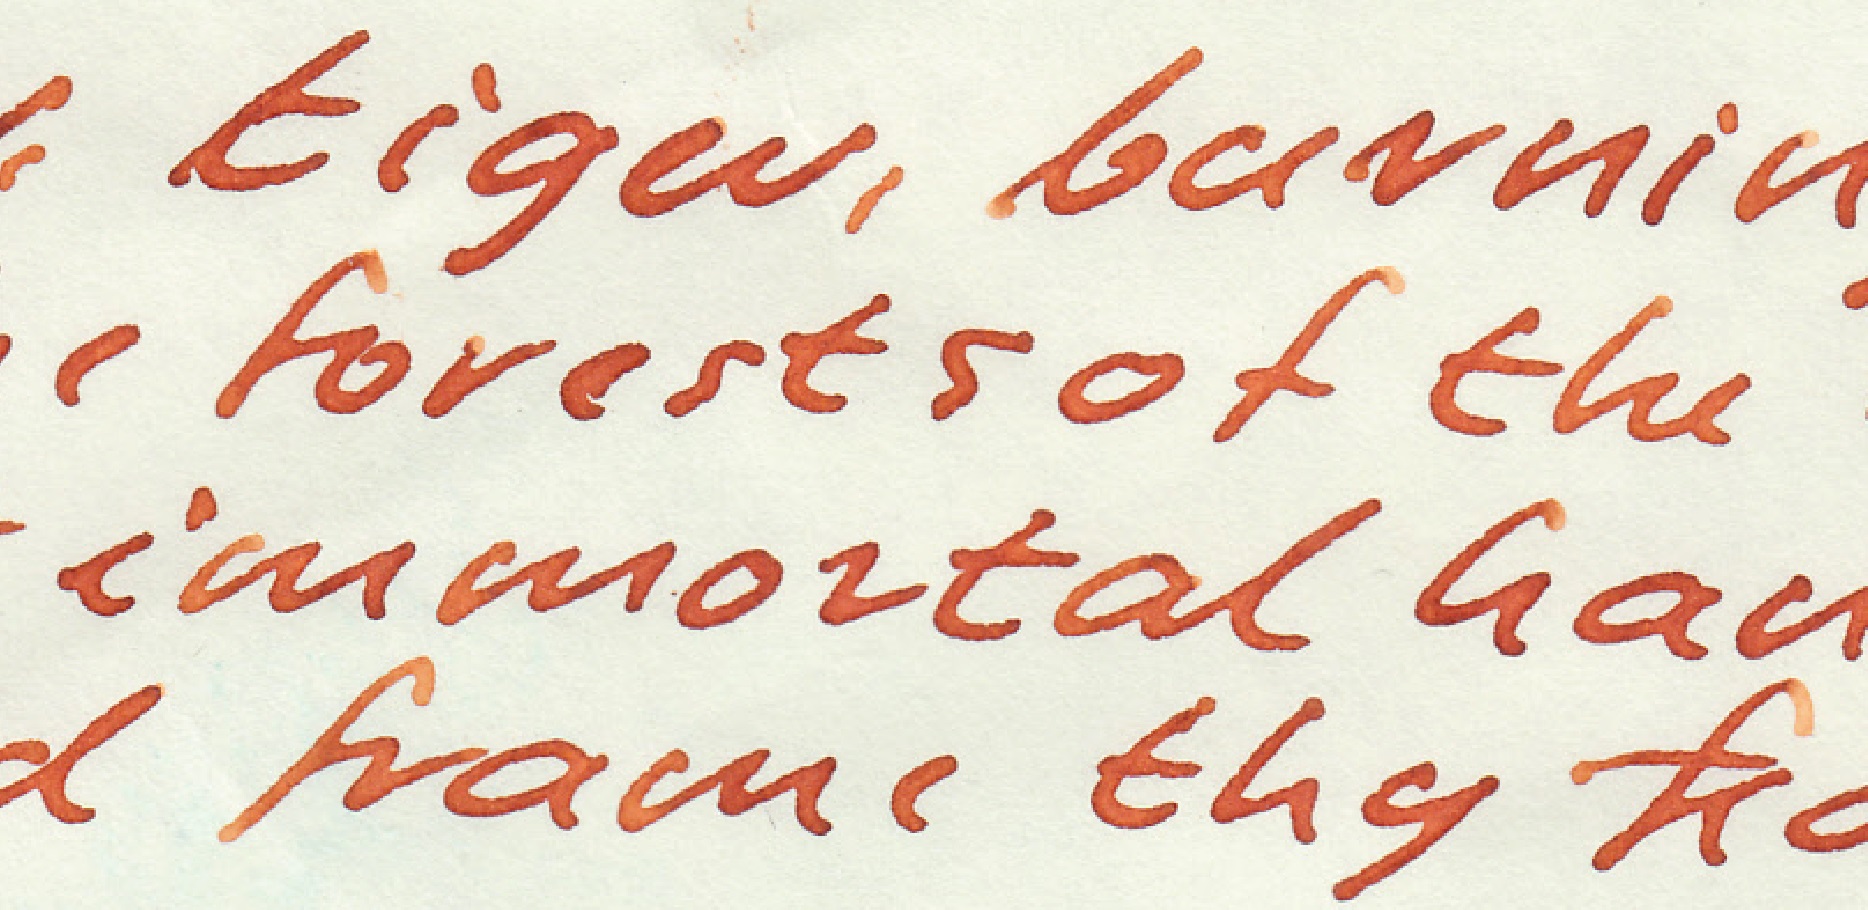 tiger, burnin
forests of the
immortal han
d frame thy